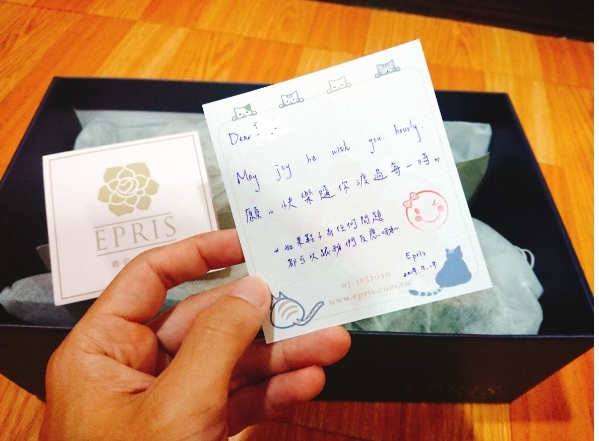 Dear
May joy be with you hourly.
願~快樂隨你渡過每一時~
*如果鞋子有任何問題
都可以跟我們反應唷~
Epris
2019.
www.epris.com.tw
EPRIS
EPRIS